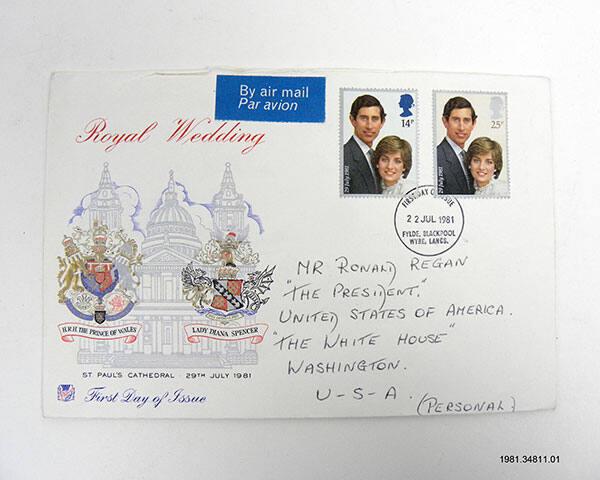 By air mail
Par avion
Royal Wedding
14P
29 July 1981
25P
29 July 1981
FIRST DAY OF ISSUE
22 JUL 1981
FYLDE, BLACKPOOL
WYRE, LANCS.
MR RONALD REGAN
"THE PRESIDENT."
UNITED STATES OF AMERICA.
"THE WHITE HOUSE"
WASHINGTON.
U-S-A.
(PERSONAL)
H.R.H. THE PRINCE OF WALES
LADY DIANA SPENCER
ST. PAUL'S CATHEDRAL · 29TH JULY 1981
First Day of Issue
1981.34811.01